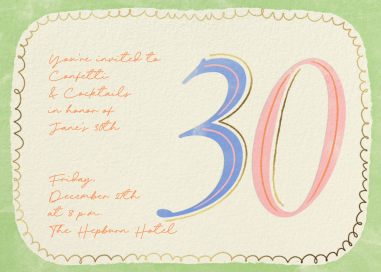 You're invited to
Confetti
& Cocktails
in honor of
Jane's 30th
30
Friday,
December 27th
at 8 p.m.
The Hepburn Hotel